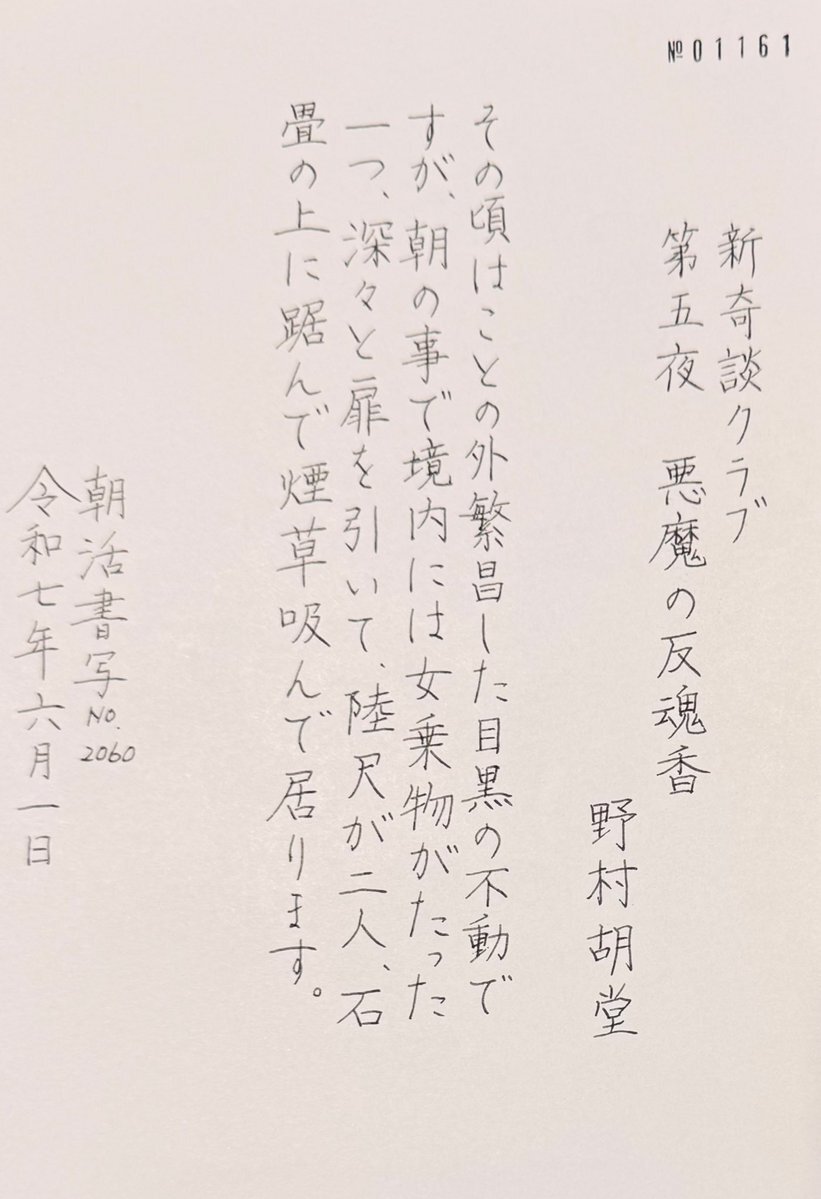 №01161
新奇談クラブ
第五夜 悪魔の反魂香
野村胡堂
その頃はことの外繁昌した目黒の不動で
すが、朝の事で境内には女乗物がたった
一つ、深々と扉を引いて、陸尺が二人、石
畳の上に踞んで煙草吸んで居ります。
朝活書写No.2060
令和七年六月一日